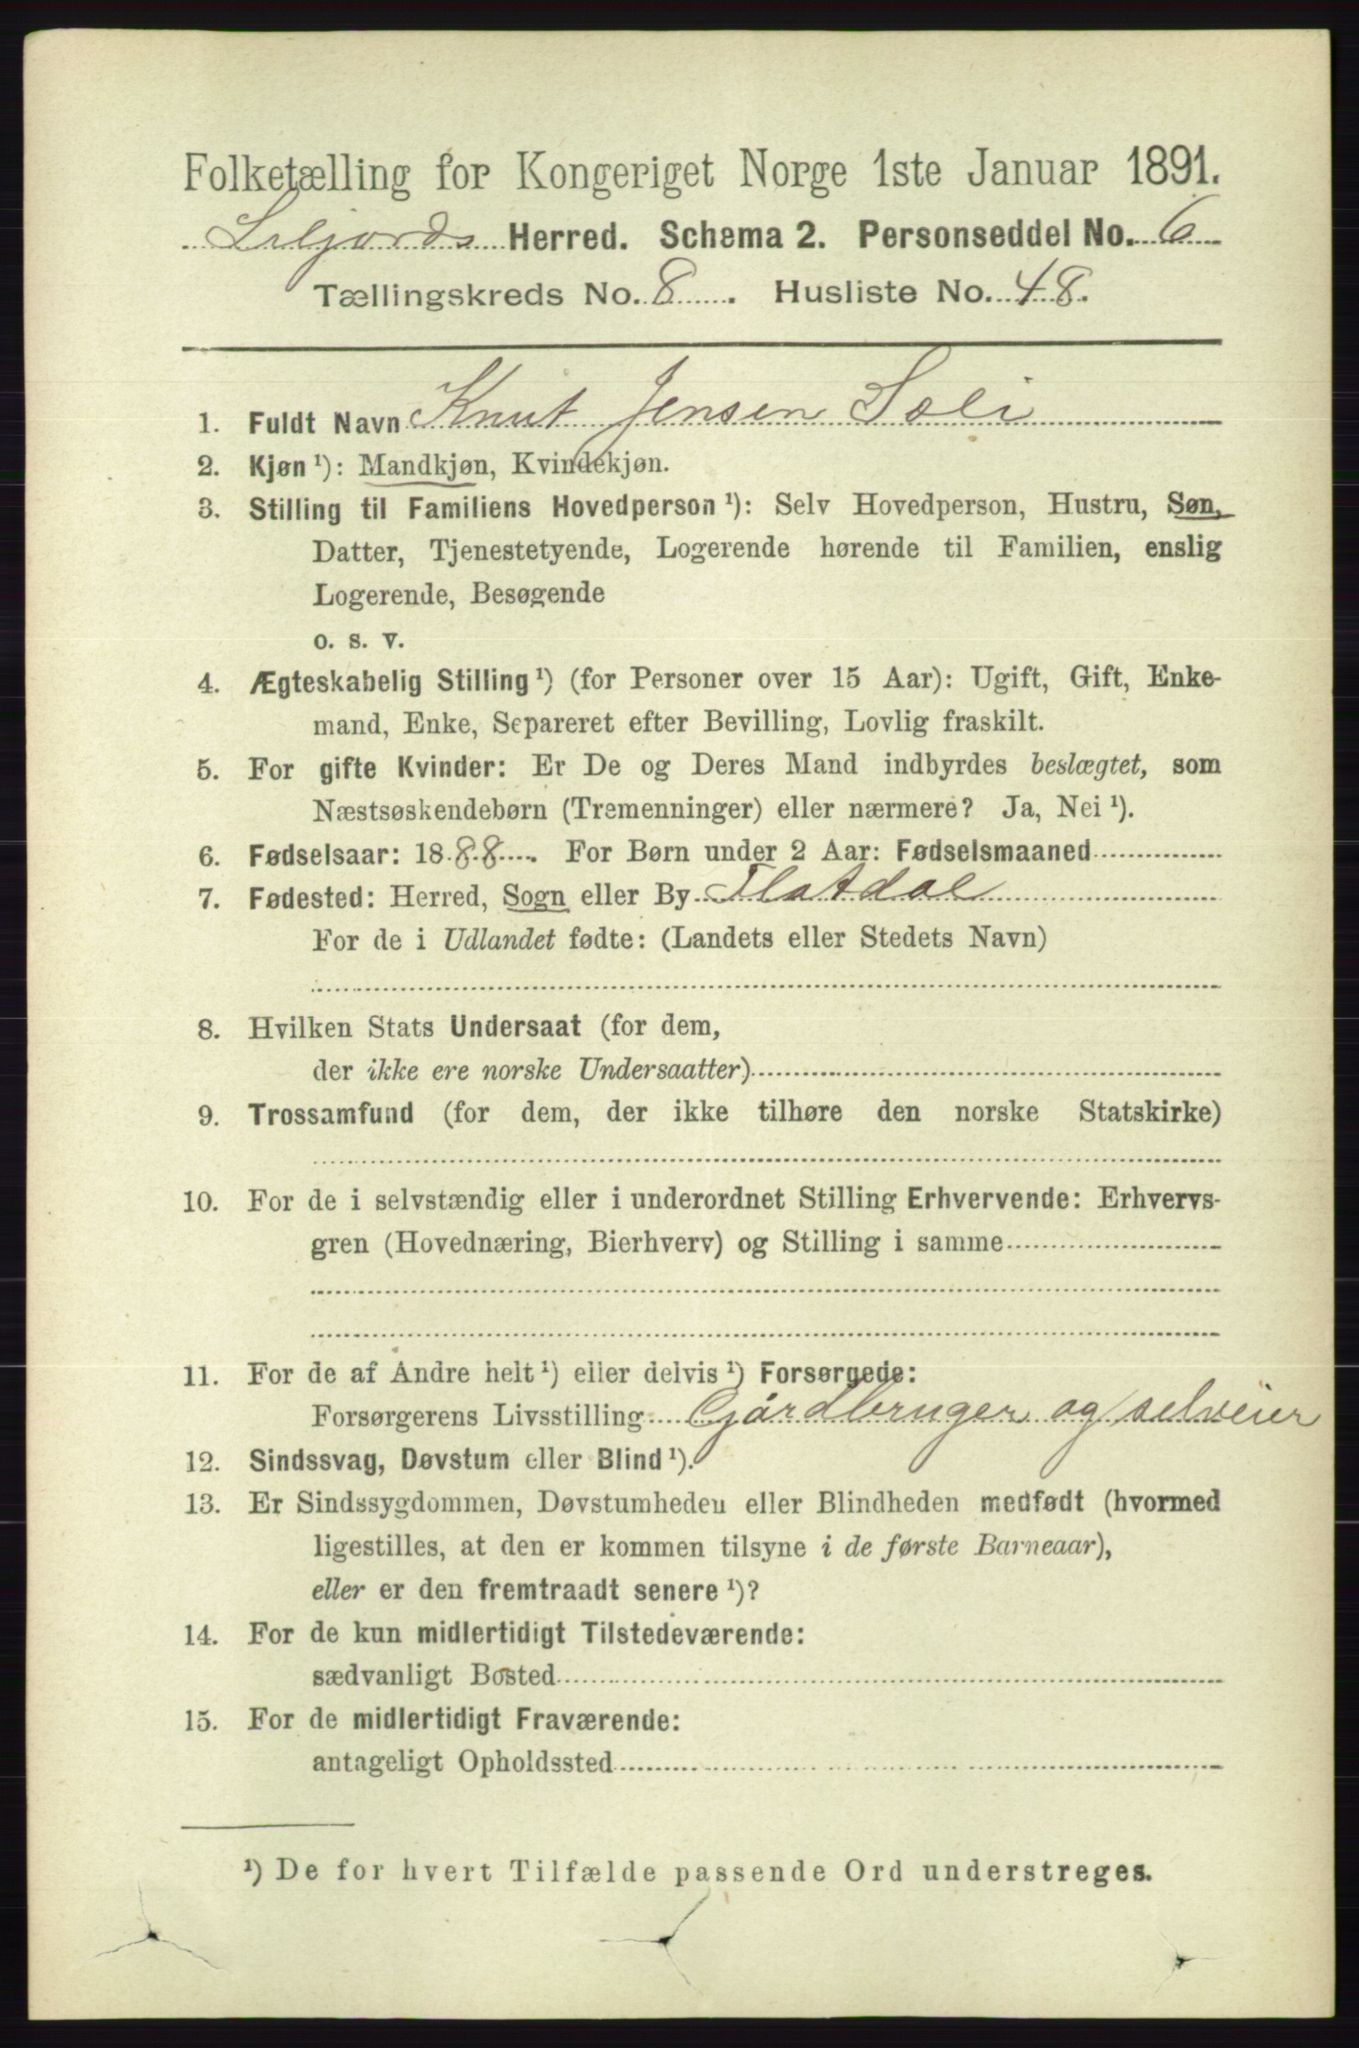 Folketælling for Kongeriget Norge 1ste Januar 1891.
Seljords Herred. Schema 2. Personseddel No. 6
Tællingskreds No. 8. Husliste No. 48.
1. Fuldt Navn Knut Jensen Soli
2. Kjøn ¹): Mandkjøn, Kvindekjøn.
3. Stilling til Familiens Hovedperson ¹): Selv Hovedperson, Hustru, Søn,
Datter, Tjenestetyende, Logerende hørende til Familien, enslig
Logerende, Besøgende
o. s. v.
4. Ægteskabelig Stilling ¹) (for Personer over 15 Aar): Ugift, Gift, Enke-
mand, Enke, Separeret efter Bevilling, Lovlig fraskilt.
5. For gifte Kvinder: Er De og Deres Mand indbyrdes beslægtet, som
Næstsøskendebørn (Tremenninger) eller nærmere? Ja, Nei ¹).
6. Fødselsaar: 1888. For Børn under 2 Aar: Fødselsmaaned
7. Fødested: Herred, Sogn eller By Flatdal
For de i Udlandet fødte: (Landets eller Stedets Navn)
8. Hvilken Stats Undersaat (for dem,
der ikke ere norske Undersaatter)
9. Trossamfund (for dem, der ikke tilhøre den norske Statskirke)
10. For de i selvstændig eller i underordnet Stilling Erhvervende: Erhvervs-
gren (Hovednæring, Bierhverv) og Stilling i samme
11. For de af Andre helt ¹) eller delvis ¹) Forsørgede:
Forsørgerens Livsstilling Gårdbruger og selveier
12. Sindssvag, Døvstum eller Blind ¹).
13. Er Sindssygdommen, Døvstumheden eller Blindheden medfødt (hvormed
ligestilles, at den er kommen tilsyne i de første Barneaar),
eller er den fremtraadt senere ¹)?
14. For de kun midlertidigt Tilstedeværende:
sædvanligt Bosted
15. For de midlertidigt Fraværende:
antageligt Opholdssted
¹) De for hvert Tilfælde passende Ord understreges.